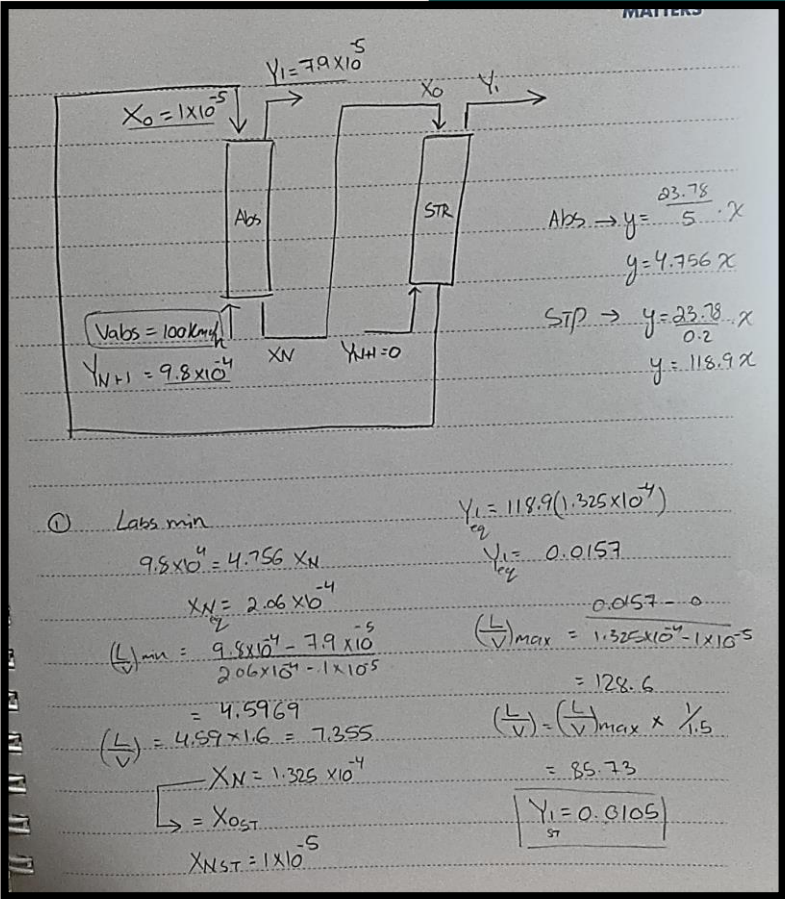 MATTERS
Y₁ = 7.9×10⁻⁵
X₀ = 1×10⁻⁵
X₀
Y₁
Abs
STR
Abs → y = 23.78/5 · x
y = 4.756 x
Vabs = 100 kmol/h
STP → y = 23.78/0.2 x
X_N
Y_N+1 = 0
Y_N+1 = 9.8×10⁻⁴
y = 118.9 x
① Labs min
9.8×10⁻⁴ = 4.756 X_N
X_N eq = 2.06×10⁻⁴
(L/V) min = 9.8×10⁻⁴ - 7.9×10⁻⁵ / 2.06×10⁻⁴ - 1×10⁻⁵
= 4.5969
(L/V) = 4.59 × 1.6 = 7.355
X_N = 1.325×10⁻⁴
= X₀ST
X_NST = 1×10⁻⁵
Y₁eq = 118.9(1.325×10⁻⁴)
Y₁eq = 0.0157
(L/V) max = 0.0157 - 0 / 1.325×10⁻⁴ - 1×10⁻⁵
= 128.6
(L/V) = (L/V) max × 1/1.5
= 85.73
Y₁ST = 0.0105